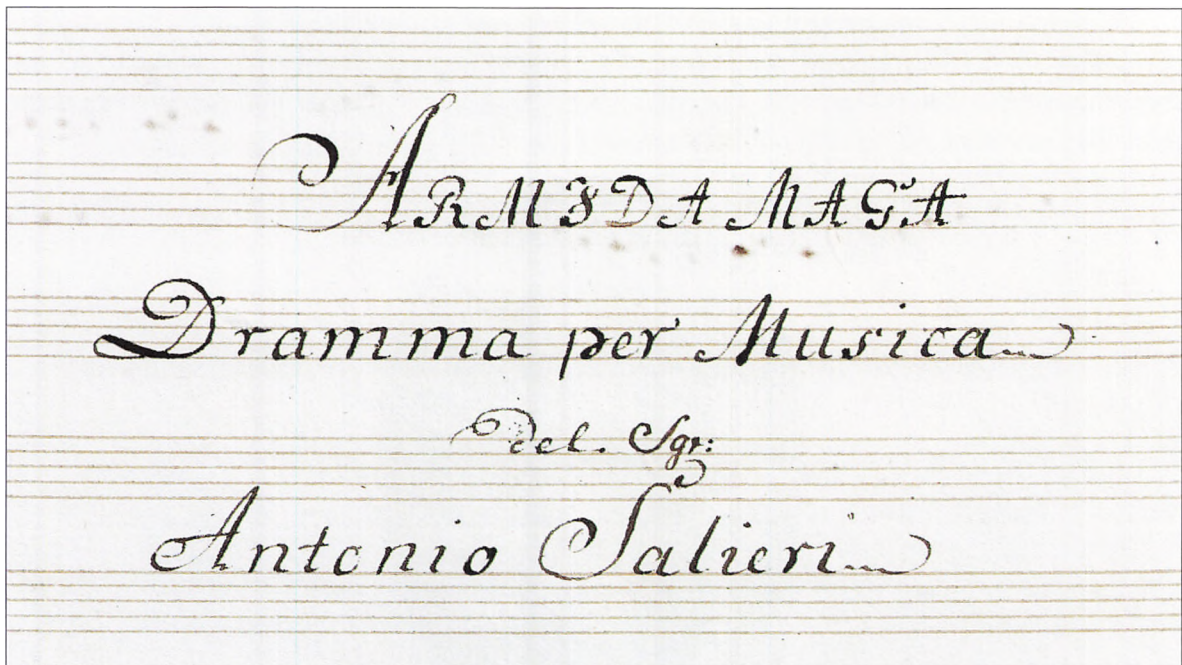 ARMIDA MAGA
Dramma per Musica
del. Sgr:
Antonio Salieri